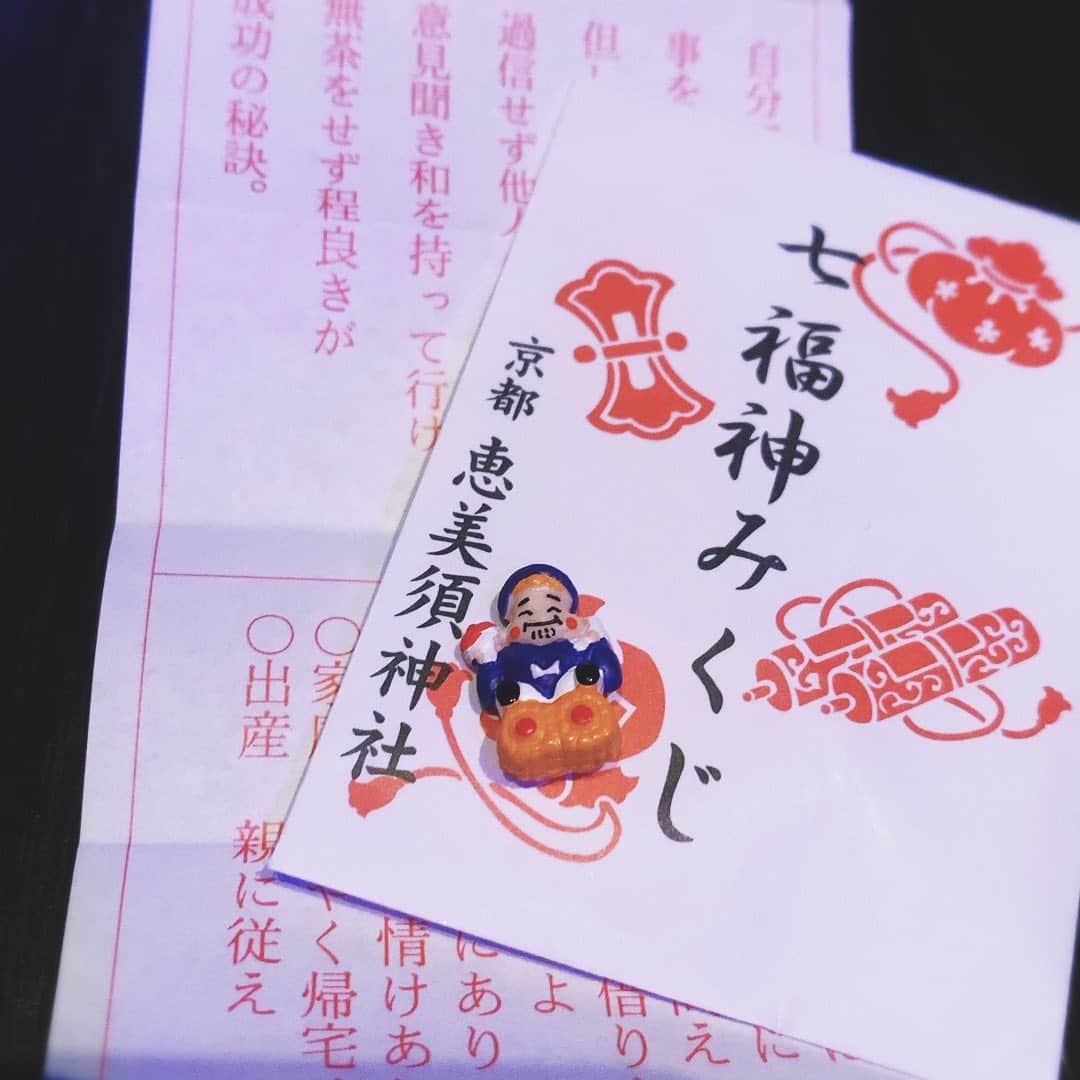 七福神みくじ
京都 恵美須神社
自分
事を
但
過信せず他人
意見聞き和を持って行け
無茶をせず程良きが
成功の秘訣。
借り
よ
にあり
情けあ
やく帰宅
○家
○出産 親に従え